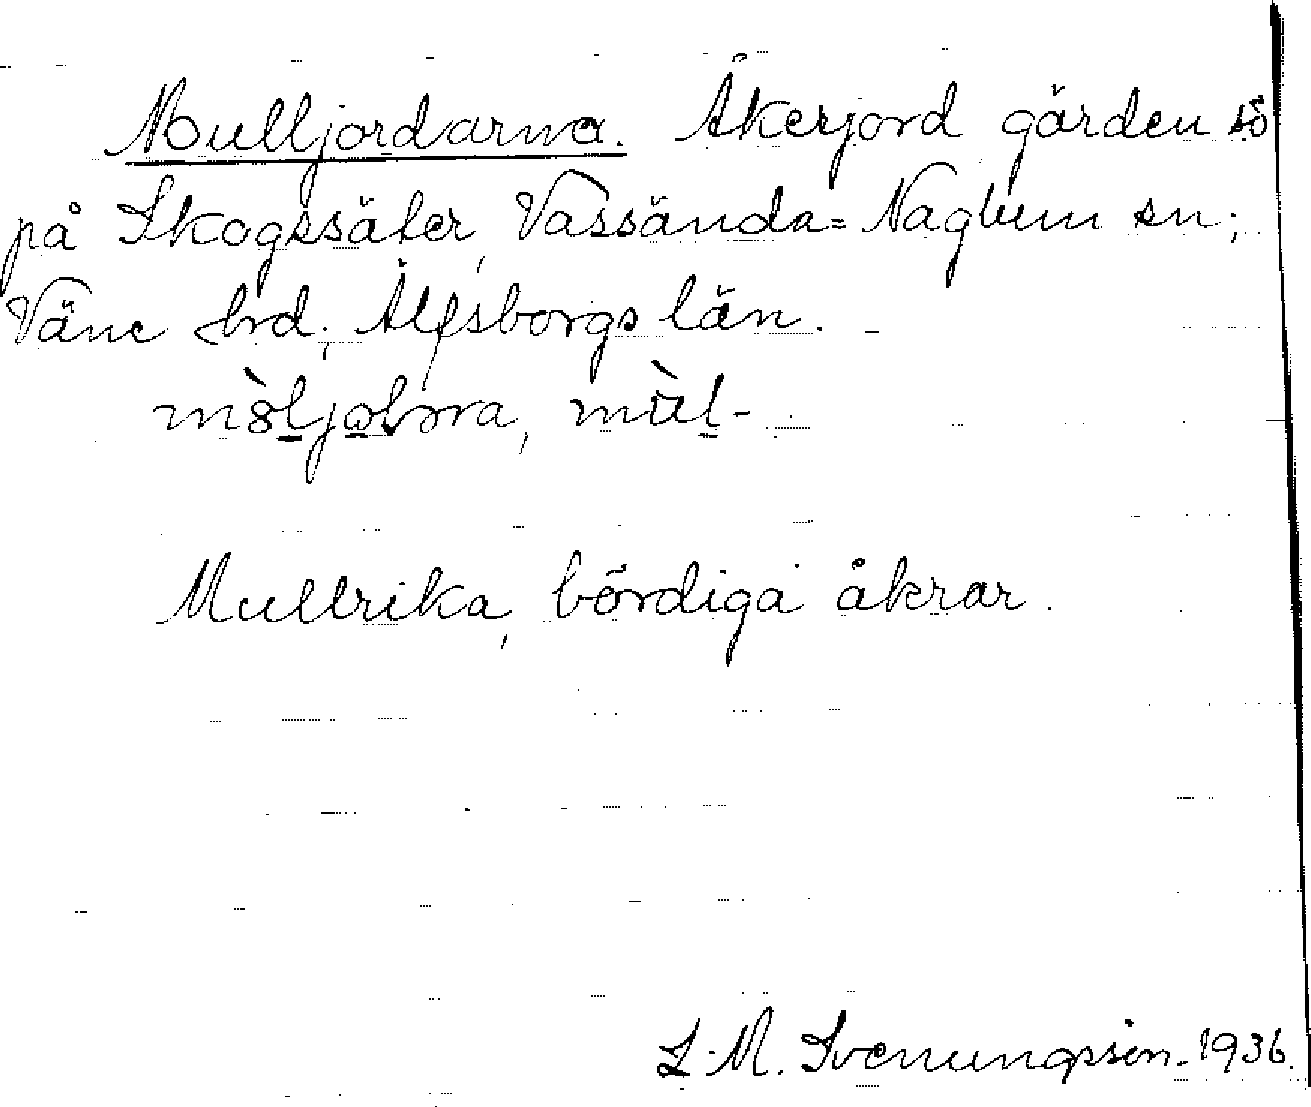 Mulljordarna. Åkerjord gärden sö
på Skogssäter, Vassända=Naglum sn;
Väne hrd, Älfsborgs län.
Mullrika, bördiga åkrar.
L. M. Svenungsson. 1936.